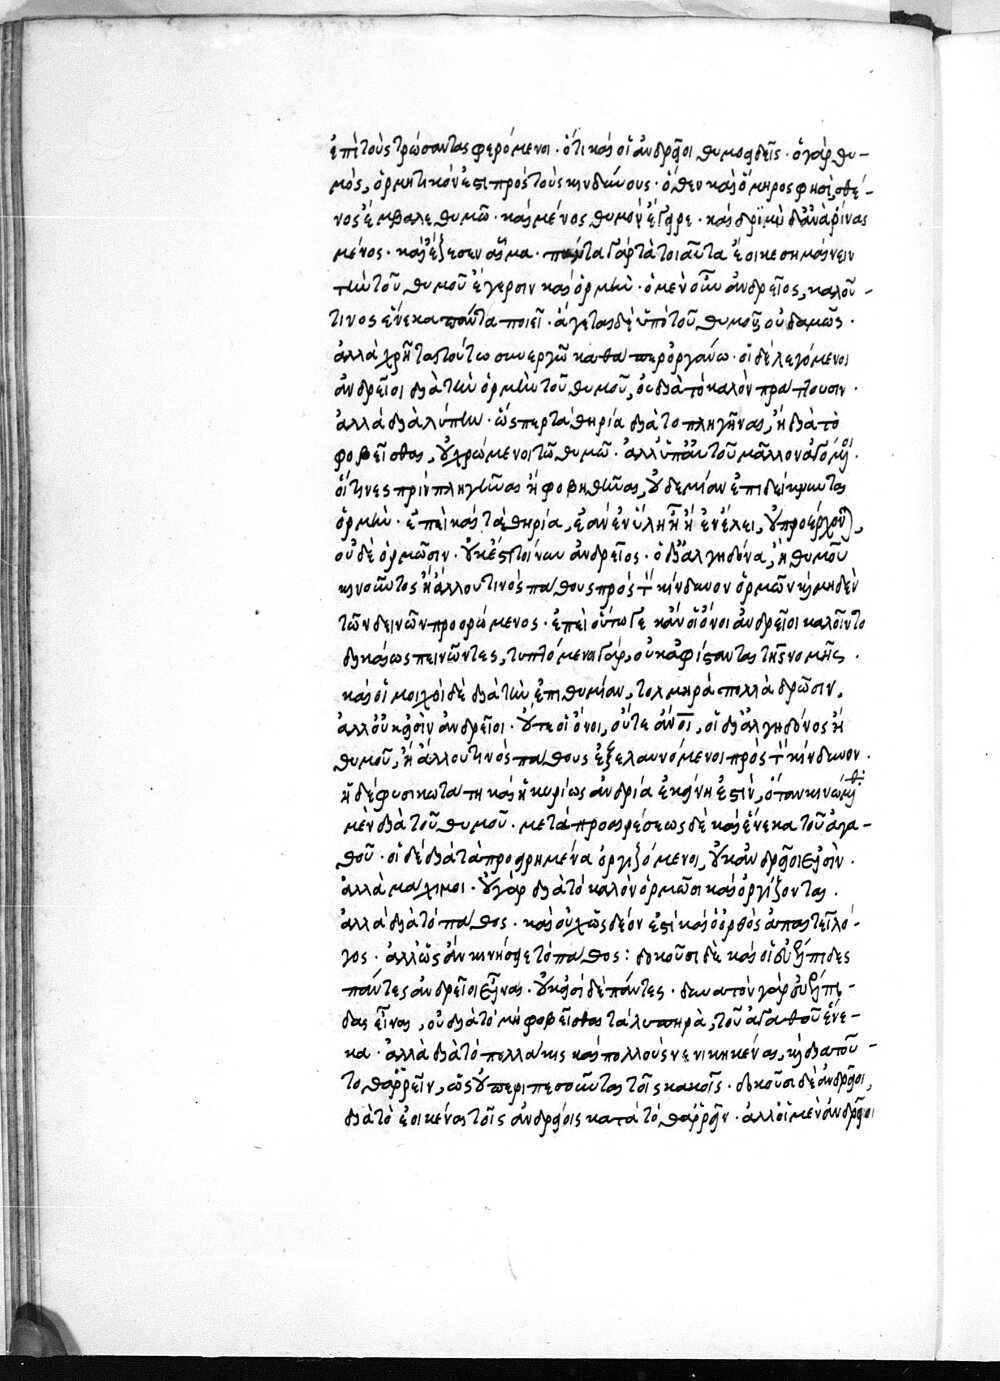 ἐπὶ τοὺς τρώσαντας φερόμενοι· ὅτι καὶ οἱ ἀνδρεῖοι θυμοειδεῖς· ὁ γὰρ θυ-
μὸς, ὁρμητικόν ἐστι πρὸς τοὺς κινδύνους· ὅθεν καὶ ὅμηρος φησὶ, σθέ-
νος ἔμβαλε θυμῶ· καὶ μένος θυμὸν ἔγειρε· καὶ δριμὺ δ' ἀνὰ ῥίνας
μένος· καὶ ἔζεσεν αἷμα· πάντα γὰρ τὰ τοιαῦτα ἔοικε σημαίνειν
τὴν τοῦ θυμοῦ ἔγερσιν καὶ ὁρμήν· ὁ μὲν οὖν ἀνδρεῖος, καλοῦ
τινος ἕνεκα πάντα ποιεῖ· ἄγεται δὲ ὑπὸ τοῦ θυμοῦ οὐδαμῶς·
ἀλλὰ χρῆται τούτω συνεργῶ καθαπερ ὀργάνω· οἱ δὲ λεγόμενοι
ἀνδρεῖοι διὰ τὴν ὁρμὴν τοῦ θυμοῦ, οὐ διὰ τὸ καλὸν πράττουσιν·
ἀλλὰ διὰ λύπην· ὥσπερ τὰ θηρία διὰ τὸ πληγῆναι, ἢ διὰ τὸ
φοβεῖσθαι, οὐ χρώμενοι τῶ θυμῶ· ἀλλ' ὑπ' αὐτοῦ μᾶλλον ἀγόμενοι·
οἵτινες πρὶν πληγῆναι ἢ φοβηθῆναι, οὐδεμίαν ἐπιδείκνυνται
ὁρμήν· ἐπεὶ καὶ τὰ θηρία, ἐὰν ἐν ὕλη ἢ ἐν ἕλει, οὐ προέρχονται,
οὐδὲ ὁρμῶσιν· οὐκ ἔστι τοίνυν ἀνδρεῖος· ὁ δι' ἀλγηδόνα, ἢ θυμοῦ
κινοῦντος ἢ ἄλλου τινὸς πάθους πρὸς τὸν κίνδυνον ὁρμῶν καὶ μηδὲν
τῶν δεινῶν προορώμενος· ἐπεὶ οὕτω γε κἂν οἱ ὄνοι ἀνδρεῖοι καλοῖντο
δικαίως πεινῶντες, τυπτόμενοι γὰρ, οὐκ ἀφίστανται τῆς νομῆς·
καὶ οἱ μοιχοὶ δὲ διὰ τὴν ἐπιθυμίαν, τολμηρὰ πολλὰ δρῶσιν,
ἀλλ' οὐκ εἰσὶν ἀνδρεῖοι· οὔτε οἱ ὄνοι, οὔτε ἄνθρωποι, οἱ δι' ἀλγηδόνος ἢ
θυμοῦ, ἢ ἄλλου τινὸς πάθους ἐξελαυνόμενοι πρὸς τὸν κίνδυνον·
ἡ δὲ φυσικωτάτη καὶ ἡ κυρίως ἀνδρία ἐκείνη ἐστὶν, ὅταν κινώμεθα
μὲν διὰ τοῦ θυμοῦ· μετὰ προαιρέσεως δὲ καὶ ἕνεκα τοῦ ἀγα-
θοῦ· οἱ δὲ διὰ τὰ προειρημένα ὀργιζόμενοι, οὐκ ἀνδρεῖοι εἰσὶν·
ἀλλὰ μαχιμοι· οὐ γὰρ διὰ τὸ καλὸν ὁρμῶσι καὶ ὀργίζονται·
ἀλλὰ διὰ τὸ πάθος· καὶ οὐχ ὡς δέον ἐστὶ καὶ ὁ ὀρθὸς ἀπαιτεῖ λό-
γος· ἀλλ' ὡς ἂν κινήσειε τὸ πάθος: δοκοῦσι δὲ καὶ οἱ εὐέλπιδες
πάντες ἀνδρεῖοι εἶναι· οὐκ εἰσὶ δὲ πάντες· δυνατὸν γὰρ εὐέλπι-
δας εἶναι, οὐ διὰ τὸ μὴ φοβεῖσθαι τὰ λυπηρὰ, τοῦ ἀγαθοῦ ἕνε-
κα· ἀλλὰ διὰ τὸ πολλάκις καὶ πολλοὺς νενικηκέναι, καὶ διὰ τοῦ-
το θαῤῥεῖν, ὡς οὐ περιπεσοῦνται τοῖς κακοῖς· δοκοῦσι δὲ ἀνδρεῖοι,
διὰ τὸ ἐοικέναι τοῖς ἀνδρείοις κατὰ τὸ θαῤῥεῖν· ἀλλ' οἱ μὲν ἀνδρεῖοι